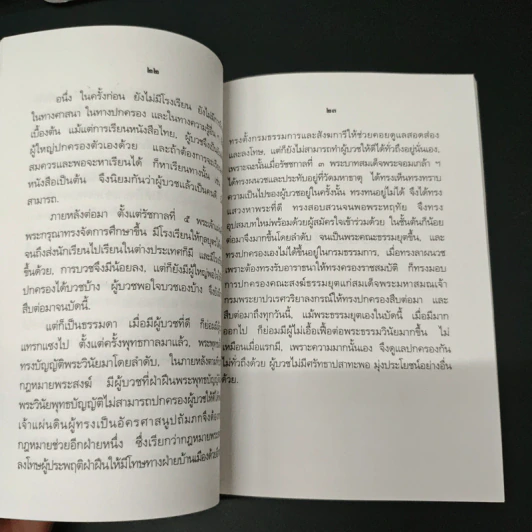 ๒๒
อนึ่ง ในครั้งก่อน ยังไม่มีโรงเรียน ยังไม่มี
ในทางศาสนา ในทางปกครอง และในทางความรู้
เบื้องต้น แม้แต่การเรียนหนังสือไทย, ผู้บวชจึงเป็น
ผู้ใหญ่ปกครองตัวเองด้วย และถ้าต้องการจะเรียน
สมควรและพอจะหาเรียนได้ ก็หาเรียนทางนั้น
หนังสือเป็นต้น จึงนิยมกันว่าผู้บวชแล้วเป็นคน
สามารถ.
ภายหลังต่อมา ตั้งแต่รัชกาลที่ ๕ พระเจ้า
พระกรุณาทรงจัดการศึกษาขึ้น มีโรงเรียนให้กุลบุตร
จนถึงส่งนักเรียนไปเรียนในต่างประเทศก็มี และ
ขึ้นด้วย, การบวชจึงมีน้อยลง, แต่ก็ยังมีผู้ใหญ่พอใจ
ปกครองได้บวชบ้าง ผู้บวชพอใจบวชเองบ้าง จึง
สืบต่อมาจนบัดนี้.
แต่ก็เป็นธรรมดา เมื่อมีผู้บวชที่ดี ก็ย่อมมี
แทรกแซงไป ตั้งแต่ครั้งพุทธกาลมาแล้ว, พระพุทธ
ทรงบัญญัติพระวินัยมาโดยลำดับ, ในภายหลัง
กฎหมายพระสงฆ์ มีผู้บวชที่ฝ่าฝืนพระพุทธ
พระวินัยพุทธบัญญัติไม่สามารถปกครองผู้บวชให้
เจ้าแผ่นดินผู้ทรงเป็นอัครศาสนูปถัมภกจึงต้อง
กฎหมายช่วยอีกฝ่ายหนึ่ง ซึ่งเรียกว่ากฎหมายพระสงฆ์
ลงโทษผู้ประพฤติฝ่าฝืนให้มีโทษทางฝ่ายบ้านเมืองด้วย
๒๓
ทรงตั้งกรมธรรมการและสังฆการีให้ช่วยคอยดูแลสอดส่อง
และลงโทษ, แต่ก็ยังไม่สามารถทำผู้บวชให้ดีได้ทั่วถึงอยู่นั่นเอง.
เพราะฉะนั้นเมื่อรัชชกาลที่ ๓ พระบาทสมเด็จพระจอมเกล้า ฯ
ได้ทรงผนวชและประทับอยู่ที่วัดมหาธาตุ ได้ทรงเห็นทรงทราบ
ความเป็นไปของผู้บวชอยู่ในครั้งนั้น ทรงทนอยู่ไม่ได้ จึงได้ทรง
แสวงหาพระที่ดี ทรงสอบสวนจนพอพระหฤทัย จึงทรง
อุปสมบทใหม่พร้อมด้วยผู้สมัครใจเข้าร่วมด้วย ในชั้นต้นก็น้อย
ต่อมาจึงมากขึ้นโดยลำดับ จนเป็นพระคณะธรรมยุตขึ้น, และ
ทรงปกครองเองไม่ได้ขึ้นอยู่ในกรมธรรมการ, เมื่อทรงลาผนวช
เพราะต้องทรงรับอาราธนาให้ทรงครองราชสมบัติ ก็ทรงมอบ
การปกครองคณะสงฆ์ธรรมยุตแก่สมเด็จพระมหาสมณเจ้า
กรมพระยาปวเรศวริยาลงกรณ์ให้ทรงปกครองสืบต่อมา และ
สืบต่อมาถึงทุกวันนี้, แม้พระธรรมยุตเองในบัดนี้ เมื่อมีมาก
ออกไป ก็ย่อมมีผู้ไม่เอื้อเฟื้อต่อพระธรรมวินัยมากขึ้น ไม่
เหมือนเมื่อแรกมี, เพราะความมากนั้นเอง จึงดูแลปกครองกัน
ไม่ทั่วถึงด้วย ผู้บวชไม่มีศรัทธาปสาทะพอ มุ่งประโยชน์อย่างอื่น
ด้วย.